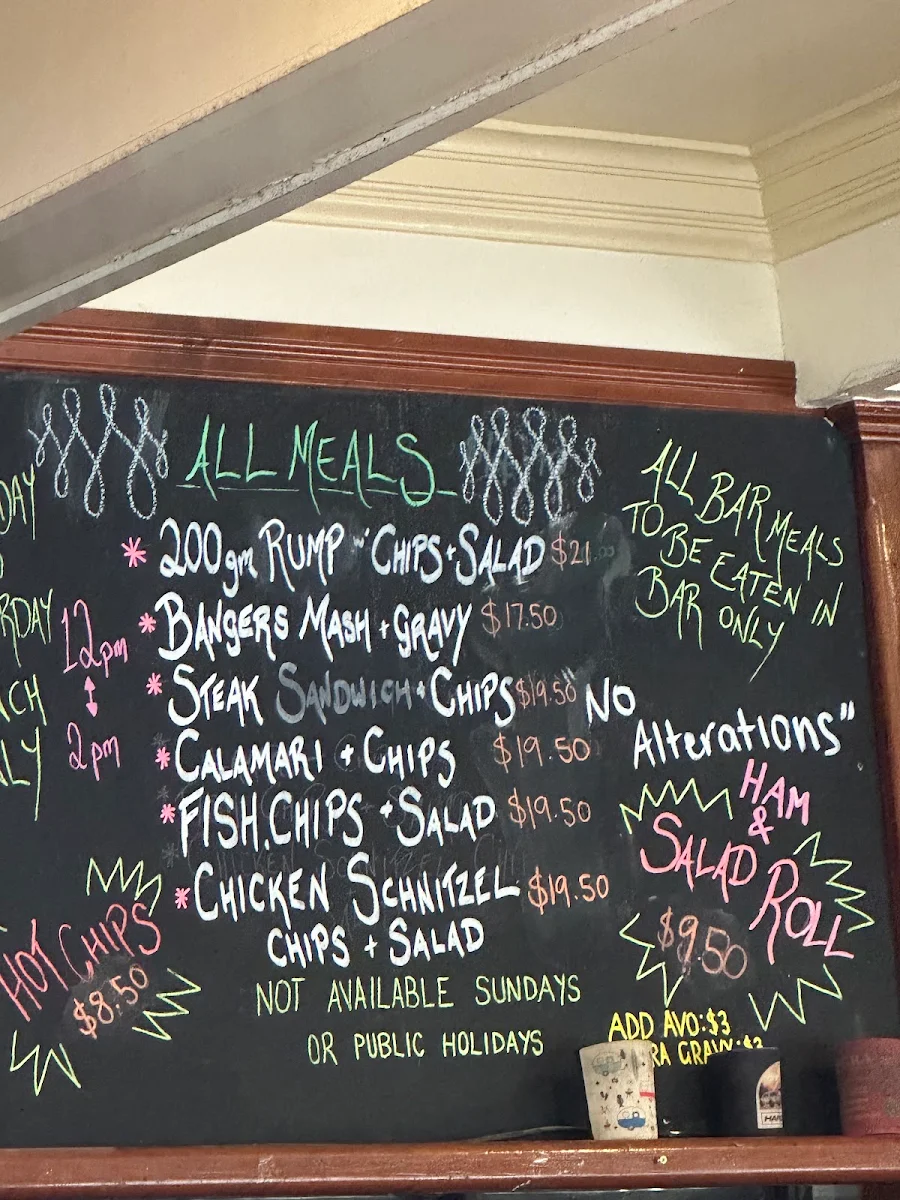 ALL MEALS
* 200gm RUMP w' CHIPS + SALAD $21.00
* BANGERS MASH + GRAVY $17.50
* STEAK SANDWICH + CHIPS $19.50
* CALAMARI + CHIPS $19.50
* FISH, CHIPS + SALAD $19.50
* CHICKEN SCHNITZEL $19.50
CHIPS + SALAD
NOT AVAILABLE SUNDAYS
OR PUBLIC HOLIDAYS
12pm
2pm
HOT CHIPS
$8.50
ALL BAR MEALS
TO BE EATEN IN
BAR ONLY
"NO
Alterations"
HAM
&
SALAD ROLL
$9.50
ADD AVO: $3
GRAVY: $2